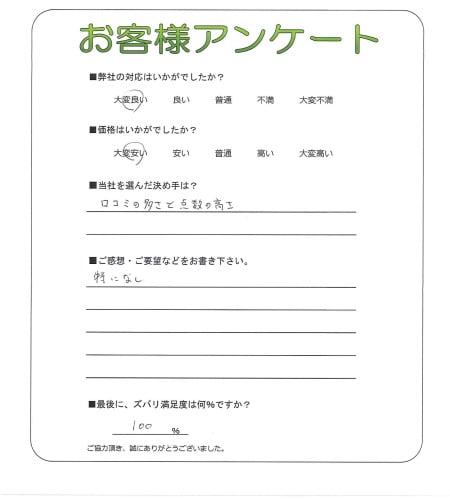 お客様アンケート
■弊社の対応はいかがでしたか？
大変良い 良い 普通 不満 大変不満
■価格はいかがでしたか？
大変安い 安い 普通 高い 大変高い
■当社を選んだ決め手は？
口コミの多さと点数の高さ
■ご感想・ご要望などをお書き下さい。
特になし
■最後に、ズバリ満足度は何%ですか？
100 %
ご協力頂き、誠にありがとうございました。